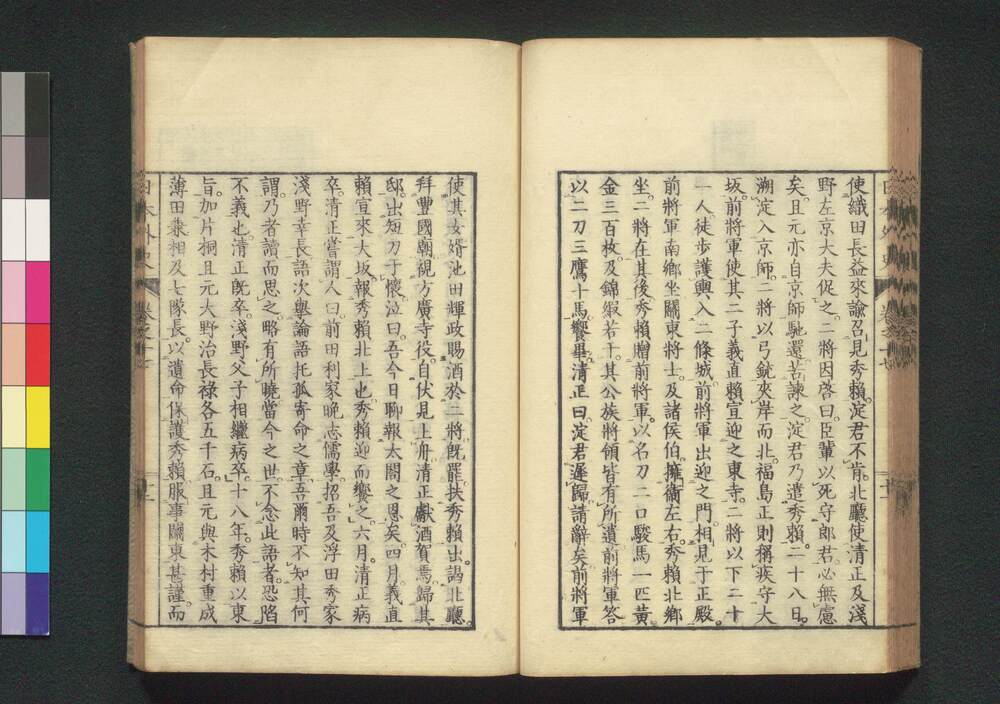 使織田長益來諭召見秀賴。淀君不肯。北廳使清正及淺
野左京大夫促之。二將因啓曰。臣輩以死守郎君。必無慮
矣。且元亦自京師馳還。苦諫之。淀君乃遣秀賴。二十八日。
溯淀入京師。二將以弓銃夾岸而北。福島正則稱疾守大
坂。前將軍使其二子義直賴宣迎之東寺。二將以下二十
一人徒步護輿入二條城。前將軍出迎之門。相見于正殿。
前將軍南鄉坐。關東將士及諸侯伯擁衛左右。秀賴北鄉
坐。二將在其後。秀賴贈前將軍。以名刀二口駿馬一匹黃
金三百枚。及錦緞若干。其公族將領皆有所遺。前將軍答
以二刀三鷹十馬。饗畢。清正曰。淀君遲歸。請辭矣。前將軍
使其女婿池田輝政賜酒於二將。既罷。扶秀賴出。謁北廳。
拜豐國廟。視方廣寺役。自伏見上舟。清正獻酒賀焉。歸其
邸。出短刀于懷。泣曰。吾今日聊報太閤之恩矣。四月。義直
賴宣來大坂。報秀賴北上也。秀賴迎而饗之。六月。清正病
卒。清正嘗謂人曰。前田利家晚志儒學。招吾及浮田秀家
淺野幸長。語次擧論語托孤寄命之章。吾爾時不知其何
謂。乃者讀而思之。略有所曉。當今之世。不念此語者。恐陷
不義也。清正既卒。淺野父子相繼病卒。十八年。秀賴以東
旨。加片桐且元大野治長祿各五千石。且元與木村重成
薄田兼相及七隊長。以遺命保護秀賴。服事關東甚謹。而
日本外史
卷之十七